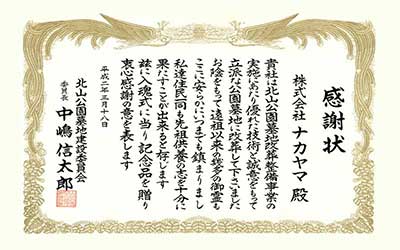 感謝状
株式会社 ナカヤマ 殿
貴社は北山公園墓地改葬整備事業の
実施にあたり優れた技術と誠意をもって
立派な公園墓地に改葬して下さいました
お陰をもって遠祖以来の幾多の御霊も
ここに安らかにいつまでも鎮まりまし
私達住民一同も先祖供養の志を十分に
果たすことが出来ると存じます
茲に入魂式に当り記念品を贈り
衷心感謝の意を表します
平成二年三月十八日
北山公園墓地建設委員会
委員長 中嶋信太郎